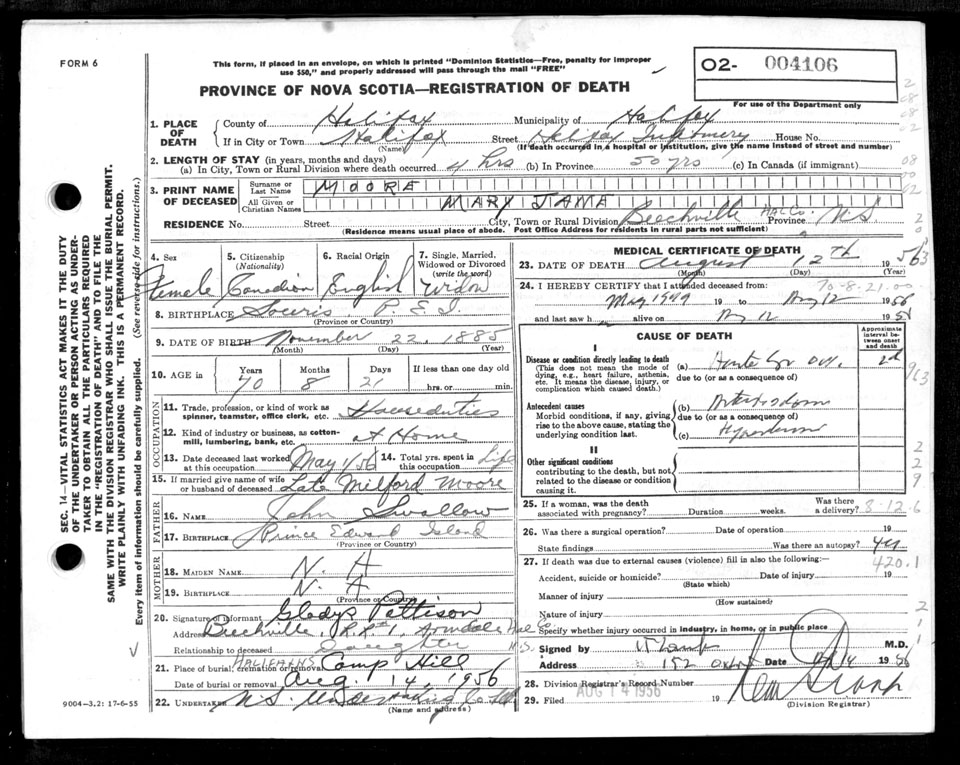 FORM 6
This form, if placed in an envelope, on which is printed "Dominion Statistics—Free, penalty for improper
use $50," and properly addressed will pass through the mail "FREE"
PROVINCE OF NOVA SCOTIA—REGISTRATION OF DEATH
O2- 004106
For use of the Department only
1. PLACE OF DEATH
County of Halifax Municipality of Halifax
If in City or Town Halifax Street Halifax Infirmary House No.
(Name) (If death occurred in a hospital or institution, give the name instead of street and number)
2. LENGTH OF STAY (in years, months and days)
(a) In City, Town or Rural Division where death occurred 4 hrs (b) In Province 50 yrs (c) In Canada (if immigrant)
3. PRINT NAME OF DECEASED
Surname or Last Name MOORE
All Given or Christian Names MARY JANE
RESIDENCE No. Street City, Town or Rural Division Beechville Hal Co. Province N.S
(Residence means usual place of abode. Post Office Address for residents in rural parts not sufficient)
4. Sex Female
5. Citizenship (Nationality) Canadian
6. Racial Origin English
7. Single, Married, Widowed or Divorced (write the word) Widow
8. BIRTHPLACE Souris P.E.I.
(Province or Country)
9. DATE OF BIRTH November 22, 1885
(Month) (Day) (Year)
10. AGE in Years 70 Months 8 Days 21 If less than one day old hrs. or min.
OCCUPATION
11. Trade, profession, or kind of work as spinner, teamster, office clerk, etc. Houseduties
12. Kind of industry or business, as cotton-mill, lumbering, bank, etc. at Home
13. Date deceased last worked at this occupation May 1/56 14. Total yrs. spent in this occupation Life
15. If married give name of wife or husband of deceased Late Milford Moore
FATHER
16. NAME John Swallow
17. BIRTHPLACE Prince Edward Island
(Province or Country)
MOTHER
18. MAIDEN NAME N. A
19. BIRTHPLACE N. A
(Province or Country)
20. Signature of informant Gladys Pattison
Address Beechville, R.R#1, Armdale Hal Co N.S.
Relationship to deceased Daughter
21. Place of burial, cremation or removal HALIFAX NS Camp Hill
Date of burial or removal Aug. 14, 1956
22. UNDERTAKER N.S. Undertaking Co Ltd
(Name and address)
MEDICAL CERTIFICATE OF DEATH
23. DATE OF DEATH August 12th 1956
(Month) (Day) (Year)
24. I HEREBY CERTIFY that I attended deceased from 70-8-21.00
May 1949 19 to Aug 12 1956
and last saw h alive on Aug 12 195
CAUSE OF DEATH
Approximate interval between onset and death
I
Disease or condition directly leading to death
(This does not mean the mode of dying, e.g., heart failure, asthenia, etc. It means the disease, injury, or complication which caused death.)
(a)
due to (or as a consequence of)
Antecedent causes
Morbid conditions, if any, giving rise to the above cause, stating the underlying condition last.
(b)
due to (or as a consequence of)
(c)
II
Other significant conditions
contributing to the death, but not related to the disease or condition causing it.
25. If a woman, was the death associated with pregnancy? Duration weeks. Was there a delivery? 8-12-6
26. Was there a surgical operation? Date of operation 19
State findings Was there an autopsy?
27. If death was due to external causes (violence) fill in also the following: 420.1
Accident, suicide or homicide? Date of injury 19
(State which)
Manner of injury
(How sustained)
Nature of injury
Specify whether injury occurred in industry, in home, or in public place
Signed by M.D.
Address 152 Date 14 1956
28. Division Registrar's Record Number
29. Filed AUG 14 1956 19
(Division Registrar)
SEC. 14—VITAL STATISTICS ACT MAKES IT THE DUTY
OF THE UNDERTAKER OR PERSON ACTING AS UNDER-
TAKER TO OBTAIN ALL THE PARTICULARS REQUIRED
IN THE "REGISTRATION OF DEATH" AND TO FILE THE
SAME WITH THE DIVISION REGISTRAR WHO SHALL ISSUE THE BURIAL PERMIT.
WRITE PLAINLY WITH UNFADING INK. THIS IS A PERMANENT RECORD.
Every item of information should be carefully supplied. (See reverse side for instructions.)
9004-3.2: 17-6-55